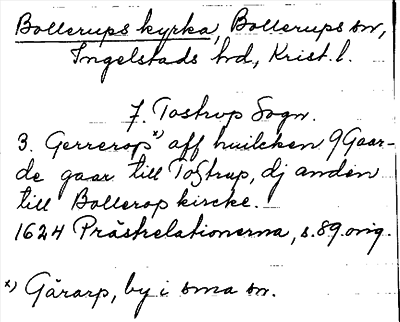 Bollerups kyrka, Bollerups sn,
Ingelstads hd, Krist. l.
7. Tostrup Sogn.
3. Gerrerop x) aff huilcken 9 Gaar-
de gaar till Tostrup, dj anden
till Bollerop kircke.
1624 Prästrelationerna, s. 89. orig.
x) Gärarp, by i sma sn.